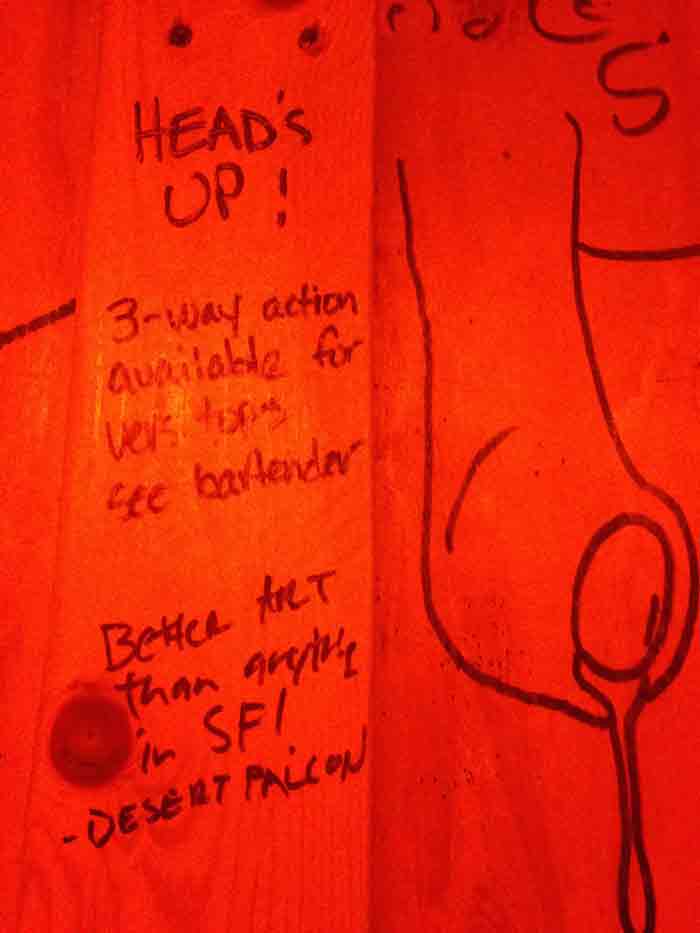 S
HEAD'S
UP!
3-way action
available for
vers tops
see bartender
Better ART
than anything
in SF!
-DESERT FALCON